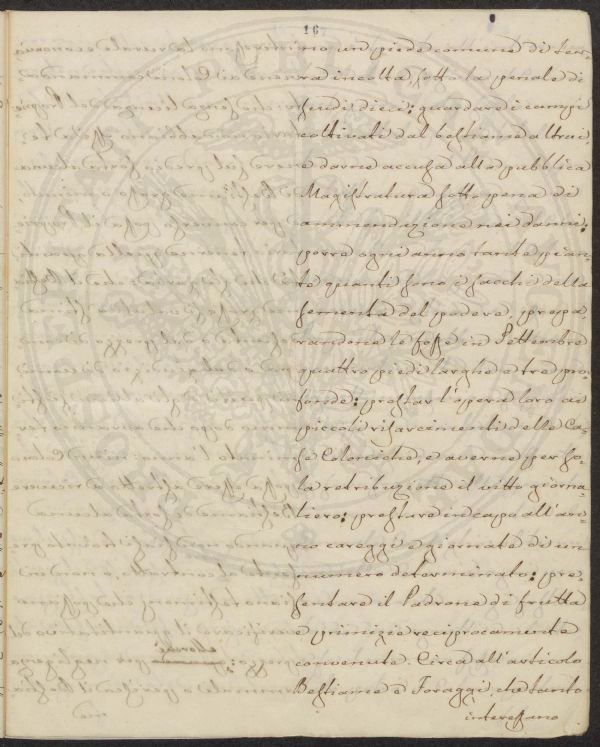 16
no, un piede comune di ter-
ra incolta, sotto la penale di
scudi dieci: guardare i campi
coltivati dal bestiame altrui,
e darne accusa alla pubblica
Magistratura sotto pena di
ammenduzione nei danni:
porre ogni anno tante pian-
te quanti sono i sacchi della
sementa del podere, prepa-
randone le fosse in Settembre
quattro piedi larghe e tre pro-
fonde: prestar l'opera loro ai
piccoli risarcimenti delle Ca-
se Coloniche, e averne per so-
la retribuzione il vitto giorna-
liero: prestare in capo all'an-
no careggi e giornate di un
numero determinato: pre-
sentare il Padrone di frutta
e primizie reciprocamente
convenute. Circa all'articolo
Bestiame e Foraggi, che tanto
interessano